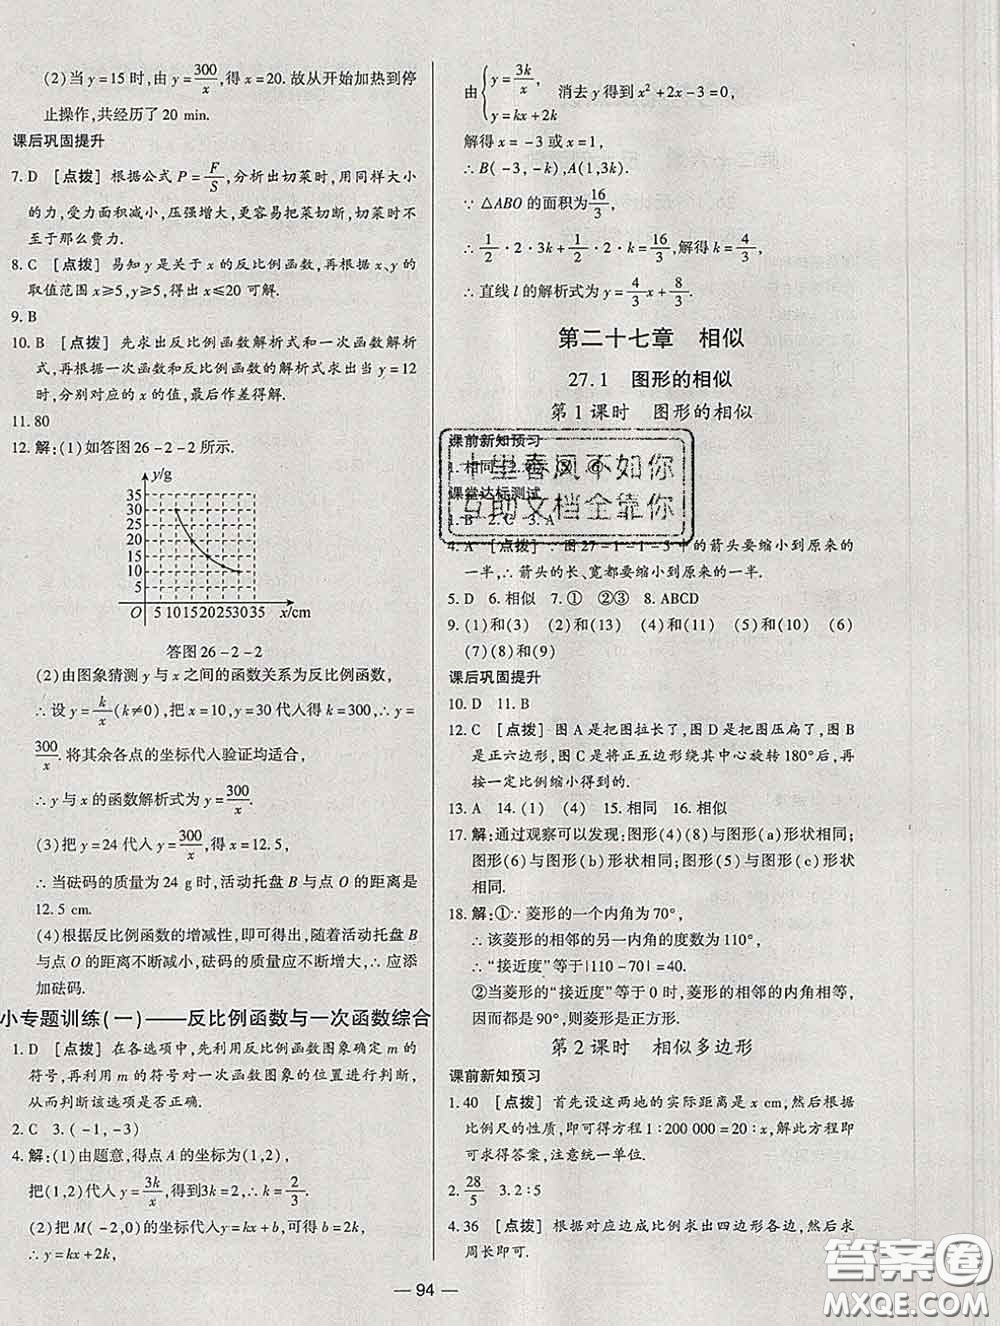 (2)当 y=15 时,由 y=300/x,得 x=20. 故从开始加热到停
止操作,共经历了 20 min.
课后巩固提升
7. D [点拨] 根据公式 P=F/S,分析出切菜时,用同样大小
的力,受力面积减小,压强增大,更容易把菜切断,切菜时不
至于那么费力.
8. C [点拨] 易知 y 是关于 x 的反比例函数,再根据 x、y 的
取值范围 x≥5,y≥5,得出 x≤20 可解.
9. B
10. B [点拨] 先求出反比例函数解析式和一次函数解析
式,再根据一次函数和反比例函数的解析式求出当 y=12
时,分别对应的 x 的值,最后作差得解.
11. 80
12. 解:(1)如答图 26-2-2 所示.
y/g
35
30
25
20
15
10
5
O 5 10 15 20 25 30 35 x/cm
答图 26-2-2
(2)由图象猜测 y 与 x 之间的函数关系为反比例函数,
∴设 y=k/x(k≠0),把 x=10,y=30 代入得 k=300,∴y=
300/x. 将其余各点的坐标代人验证均适合,
∴y 与 x 的函数解析式为 y=300/x.
(3)把 y=24 代人 y=300/x,得 x=12.5,
∴当砝码的质量为 24 g 时,活动托盘 B 与点 O 的距离是
12.5 cm.
(4)根据反比例函数的增减性,即可得出,随着活动托盘 B
与点 O 的距离不断减小,砝码的质量应不断增大,∴应添
加砝码.
小专题训练(一)——反比例函数与一次函数综合
1. D [点拨] 在各选项中,先利用反比例函数图象确定 m 的
符号,再利用 m 的符号对一次函数图象的位置进行判断,
从而判断该选项是否正确.
2. C 3. (-1,-3)
4. 解:(1)由题意,得点 A 的坐标为(1,2),
把(1,2)代人 y=3k/x,得到3k=2,∴k=2/3.
(2)把 M(-2,0)的坐标代人y=kx+b,可得 b=2k,
∴y=kx+2k,
由{y=3k/x, y=kx+2k 消去 y 得到 x²+2x-3=0,
解得 x=-3 或 1,
∴B(-3,-k),A(1,3k).
∵△ABO 的面积为16/3,
∴1/2·2·3k+1/2·2·k=16/3,解得 k=4/3,
∴直线 l 的解析式为 y=4/3x+8/3.
第二十七章 相似
27.1 图形的相似
第 1 课时 图形的相似
课前新知预习
1. 相同
课堂达标测试
1. B 2. C 3. A
十里春风不如你
互助文档全靠你
4. A [点拨] ∵图 27-1-1-3 中的箭头要缩小到原来的
一半,∴箭头的长、宽都要缩小到原来的一半.
5. D 6. 相似 7. ① ②③ 8. ABCD
9. (1)和(3) (2)和(13) (4)和(11) (5)和(10) (6)
(7)(8)和(9)
课后巩固提升
10. D 11. B
12. C [点拨] 图 A 是把图拉长了,图 D 是把图压扁了,图 B
是正六边形,图 C 是将正五边形绕其中心旋转 180°后,再
按一定比例缩小得到的.
13. A 14. (1) (4) 15. 相同 16. 相似
17. 解:通过观察可以发现:图形(4)(8)与图形(a)形状相同;
图形(6)与图形(b)形状相同;图形(5)与图形(c)形状
相同.
18. 解:①∵菱形的一个内角为 70°,
∴该菱形的相邻的另一内角的度数为 110°,
∴“接近度”等于|110-70|=40.
②当菱形的“接近度”等于 0 时,菱形的相邻的内角相等,
因而都是 90°,则菱形是正方形.
第 2 课时 相似多边形
课前新知预习
1. 40 [点拨] 首先设这两地的实际距离是 x cm,然后根据
比例尺的性质,即可得方程 1∶200 000=20∶x,解此方程即
可求得答案,注意统一单位.
2. 28/5 3. 2∶5
4. 36 [点拨] 根据对应边成比例求出四边形各边,然后求
周长即可.
— 94 —
答案圈
MXQE.COM